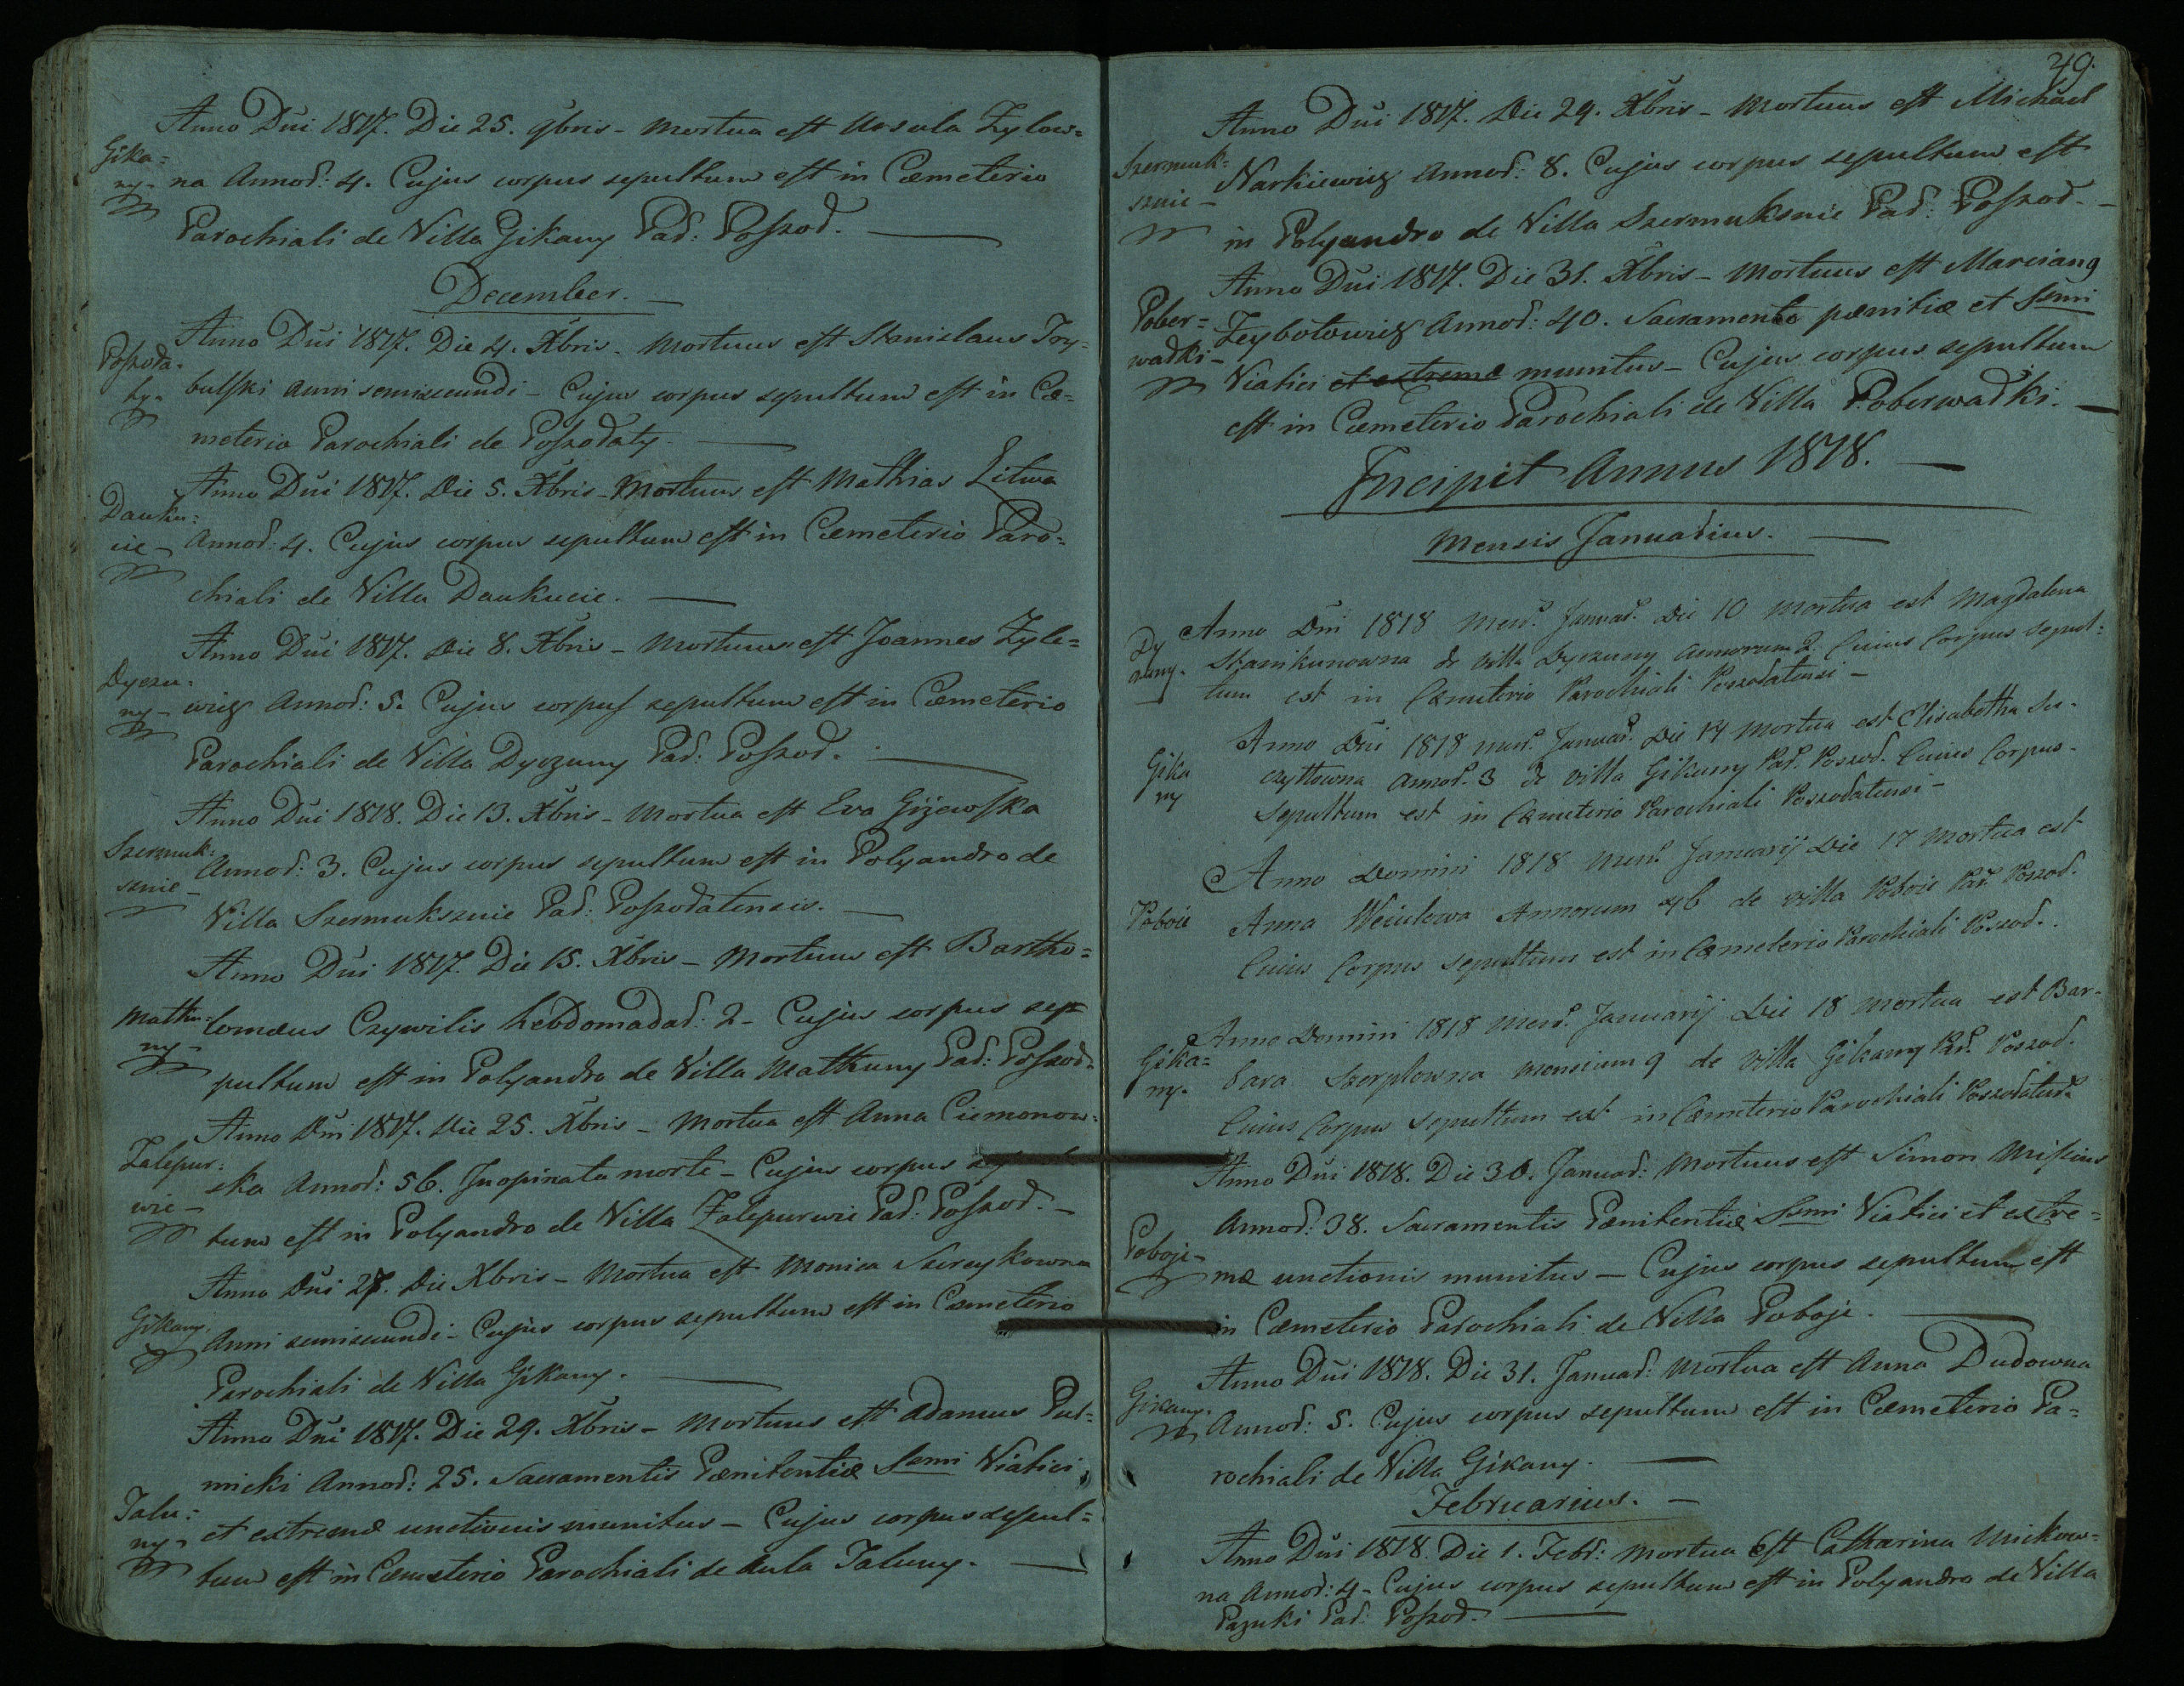 Anno Dũi 1817. Die 25. 9bris - Mortua est Ursula Zylow=
Gika=
ny - na Annor: 4. Cujus corpus sepultum est in Cæmeterio
Parochiali de Villa Gikany Par: Poszod.
December.
Anno Dũi 1817. Die 4. Xbris - Mortuus est Stanislaus Try=
Poszoda=
ty - bulski anni semisecundi - Cujus corpus sepultum est in Cæ=
meterio Parochiali de Poszodaty.
Anno Dũi 1817. Die 5. Xbris - Mortuus est Mathias Litwa
Dauku=
cie - Annor: 4. Cujus corpus sepultum est in Cæmeterio Paro=
chiali de Villa Daukucie.
Anno Dũi 1817. Die 8. Xbris - Mortuus est Joannes Zyle=
Dyczu=
ny - wicz Annor: 5. Cujus corpus sepultum est in Cæmeterio
Parochiali de Villa Dyczuny Par: Poszod.
Anno Dũi 1818. Die 13. Xbris - Mortua est Eva Giżewska
Szermuk=
sznie - Annor: 3. Cujus corpus sepultum est in Polyandro de
Villa Szermuksznie Par: Poszodatensis.
Anno Dũi 1817. Die 15. Xbris - Mortuus est Bartho=
Mathu=
ny - lomæus Czywilis hebdomadar: 2 - Cujus corpus sep
pultum est in Polyandro de Villa Mathuny Par: Poszod.
Anno Dũi 1817. Die 25. Xbris - Mortua est Anna Ciemonow=
Zalepur=
wie - ska Annor: 56. Inopinata morte - Cujus corpus
tum est in Polyandro de Villa Zalepurwie Par: Poszod. -
Anno Dũi 27. Die Xbris - Mortua est Monica Szreykowna
Gikany. Anni semisecundi - Cujus corpus sepultum est in Cæmeterio
Parochiali de Villa Gikany.
Anno Dũi 1817. Die 29. Xbris - Mortuus est Adamus Put=
nicki Annor: 25. Sacramentis Pænitentiæ Ssmi Viatici
Talu=
ny - et extremæ unctionis munitus - Cujus corpus sepul=
tum est in Cæmeterio Parochiali de Aula Taluny.
49.
Anno Dũi 1817. Die 29. Xbris - Mortuus est Michael
Szermuk=
sznie - Narkiewicz Annor: 8. Cujus corpus sepultum est
in Polyandro de Villa Szermuksnie Par: Poszod. -
Anno Dũi 1817. Die 31. Xbris - Mortuus est Marcian9
Pober=
wadki - Zeybotowicz Annor: 40. Sacramento pænitiæ et Ssmi
Viatici et extremæ munitus - Cujus corpus sepultum
est in Cæmeterio Parochiali de Villa Poberwadki.
Incipit Annus 1818.
Mensis Januarius.
Anno Dni 1818 Mens. Januar. Die 10 mortua est Magdalena
Dy
czuny. Stanikunowna de Villa Dyczuny Annorum 2. Cuius Corpus sepul=
tum est in Cæmeterio Parochiali Poszodatensi -
Anno Dni 1818 mens. Januar. Die 14 Mortua est Elisabetha Su-
Gika
ny czyttowna Annor. 3 de Villa Gikany Par. Poszod. Cuius Corpus -
sepultum est in Cæmeterio Parochiali Poszodatensi -
Anno Domini 1818 Mens. Januarij Die 17 Mortua est
Poboie Anna Weiulowa Annorum 46 de villa Poboie Par. Poszod.
Cuius Corpus sepultum est in Cæmeterio Parochiali Poszod.
Anno Domini 1818 Mens. Januarij Die 18 mortua est Bar-
Gika=
ny. bara Szerptowna mensium 9 de Villa Gikany Par. Poszod.
Cuius Corpus sepultum est in Cæmeterio Parochiali Poszodatens.
Anno Dũi 1818. Die 30. Januar: Mortuus est Simon Misius
Annor: 38. Sacramentis Pænitentiæ Ssmi Viatici et extre=
Poboje - mæ unctionis munitus - Cujus corpus sepultum est
in Cæmeterio Parochiali de Villa Poboje.
Anno Dũi 1818. Die 31. Januar: Mortua est Anna Dudowna
Gikany. Annor: 5. Cujus corpus sepultum est in Cæmeterio Pa=
rochiali de Villa Gikany.
Februarius. -
Anno Dũi 1818. Die 1. Febr: Mortua est Catharina Mickow=
na Annor: 4 - Cujus corpus sepultum est in Polyandro de Villa
Pazuki Par: Poszod.